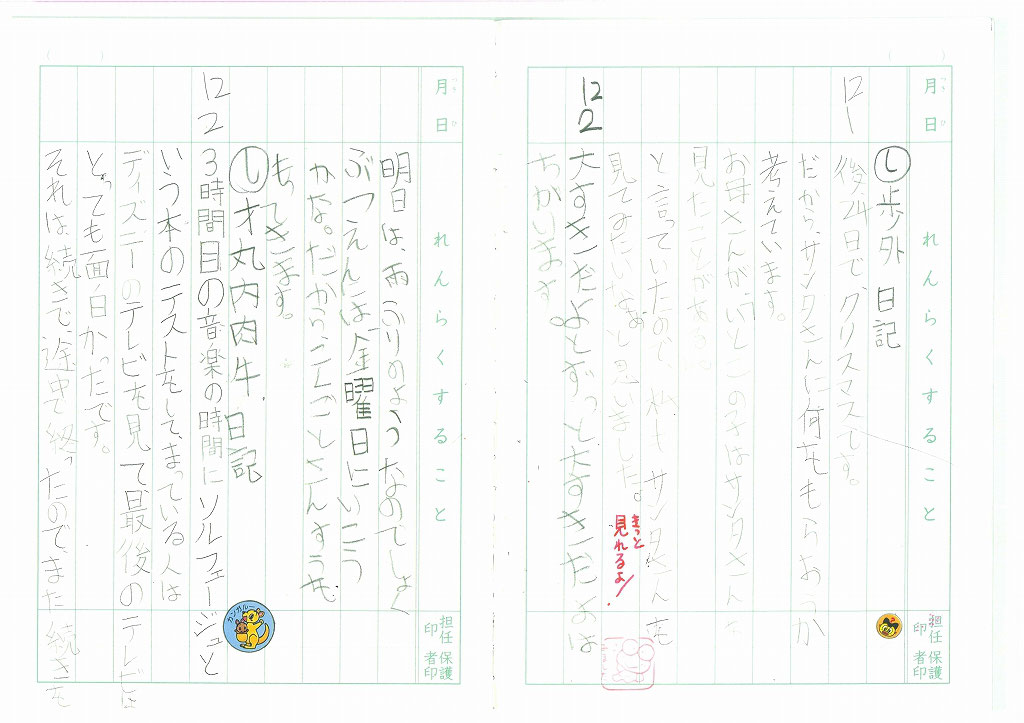 月日
れんらくすること
担任印
保護者印
12 1
し 歩外 日記
後、24日で、クリスマスです。
だから、サンタさんに何をもらおうか
考えています。
お母さんが、「いとこの
はサンタさん
見たことがある。
と言っていたので、私もサンタさんを
見てみたいなあと思いました。
きっと
見れるよ!
12 2
大すきだよとずっと大すきだよは
ちがいます。
月日
れんらくすること
担任印
保護者印
明日は、雨ふりのようなのでしょく
ぶつえんは、金曜日にいこう
かな。だから
さんすうを
もってきます。
12 2
し 才丸内肉牛 日記
3時間目の音楽の時間にソルフェージュと
いう本のテストをして、まっている人は
ディズニーのテレビを見て最後のテレビは
とっても面白かったです。
それは続きで途中で終ったので、また続きを
カンガルー